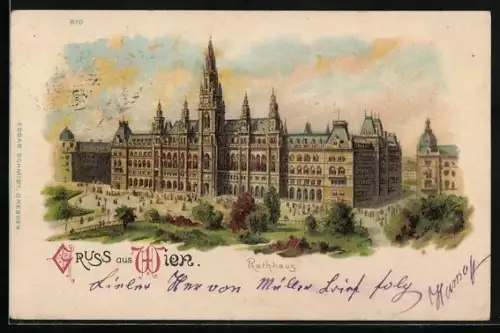 810
EDGAR SCHMIDT, DRESDEN
GRUSS AUS WIEN.
Rathhaus
Lieber Herr von Müller Brief folgt